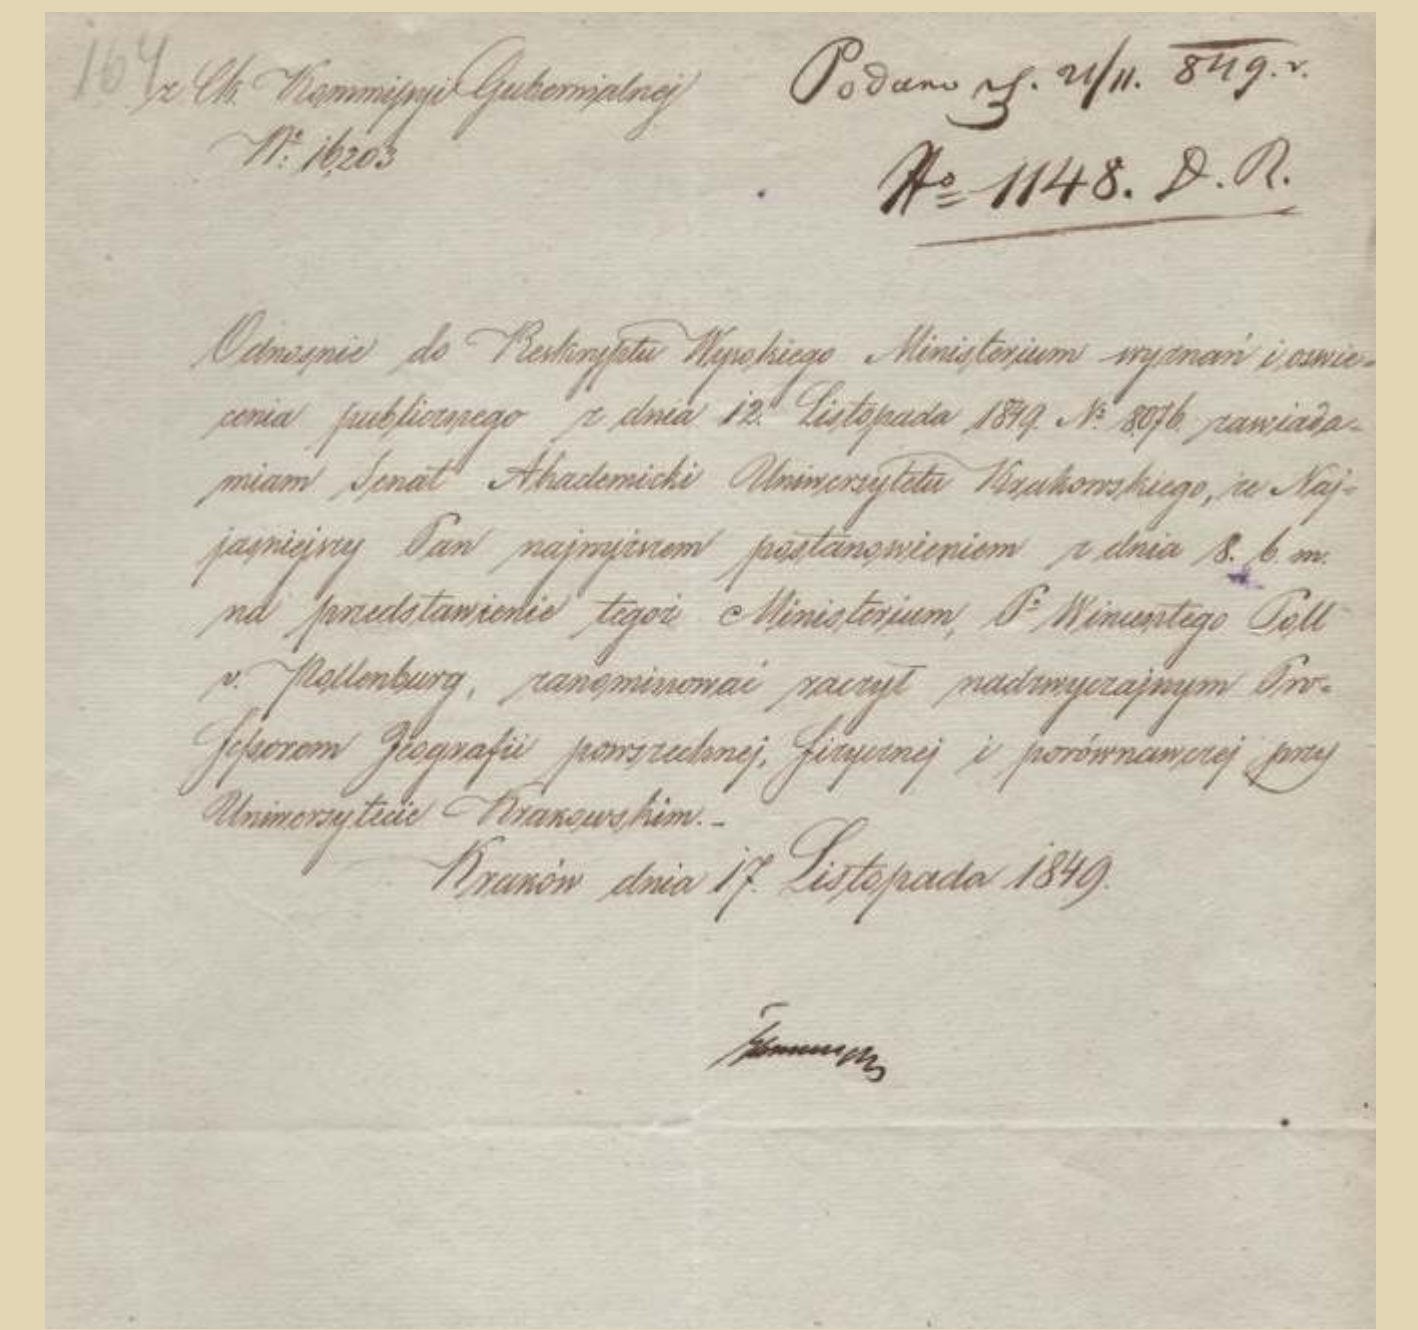 164
z Ck. Kommissyi Gubernialnej
Nº 16,203
Podano d. 21/11. 849. r.
Nº 1148. D. R.
Odnośnie do Reskryptu Wysokiego Ministerium wyznań i oświe-
cenia publicznego z dnia 12. Listopada 1849. Nº 8076 zawiada-
miam Senat Akademicki Uniwersytetu Krakowskiego, że Naj-
jaśniejszy Pan najwyższem postanowieniem z dnia 8. b. m.
na przedstawienie tegoż Ministerium, Pª Wincentego Poll
v. Pollenburg, zanominować raczył nadzwyczajnym Pro-
fessorem Geografii powszechnej, fizycznej i porównawczej przy
Uniwersytecie Krakowskim. -
Kraków dnia 17. Listopada 1849.